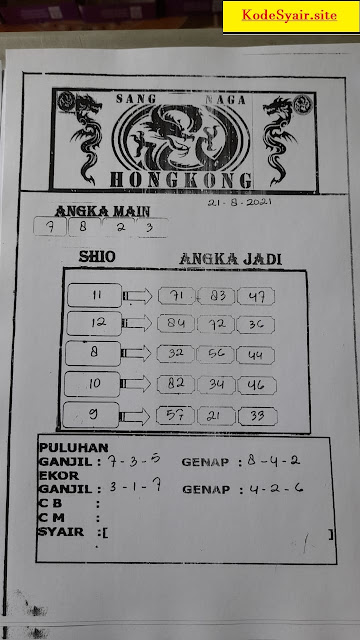 KodeSyair.site
SANG NAGA
HONGKONG
21-8-2021
ANGKA MAIN
7 8 2 3
SHIO ANGKA JADI
11 71 83 47
12 84 72 36
8 32 56 44
10 82 34 46
9 57 21 33
PULUHAN
GANJIL : 7-3-5 GENAP : 8-4-2
EKOR
GANJIL : 3-1-7 GENAP : 4-2-6
C B :
C M :
SYAIR :[ ]
: